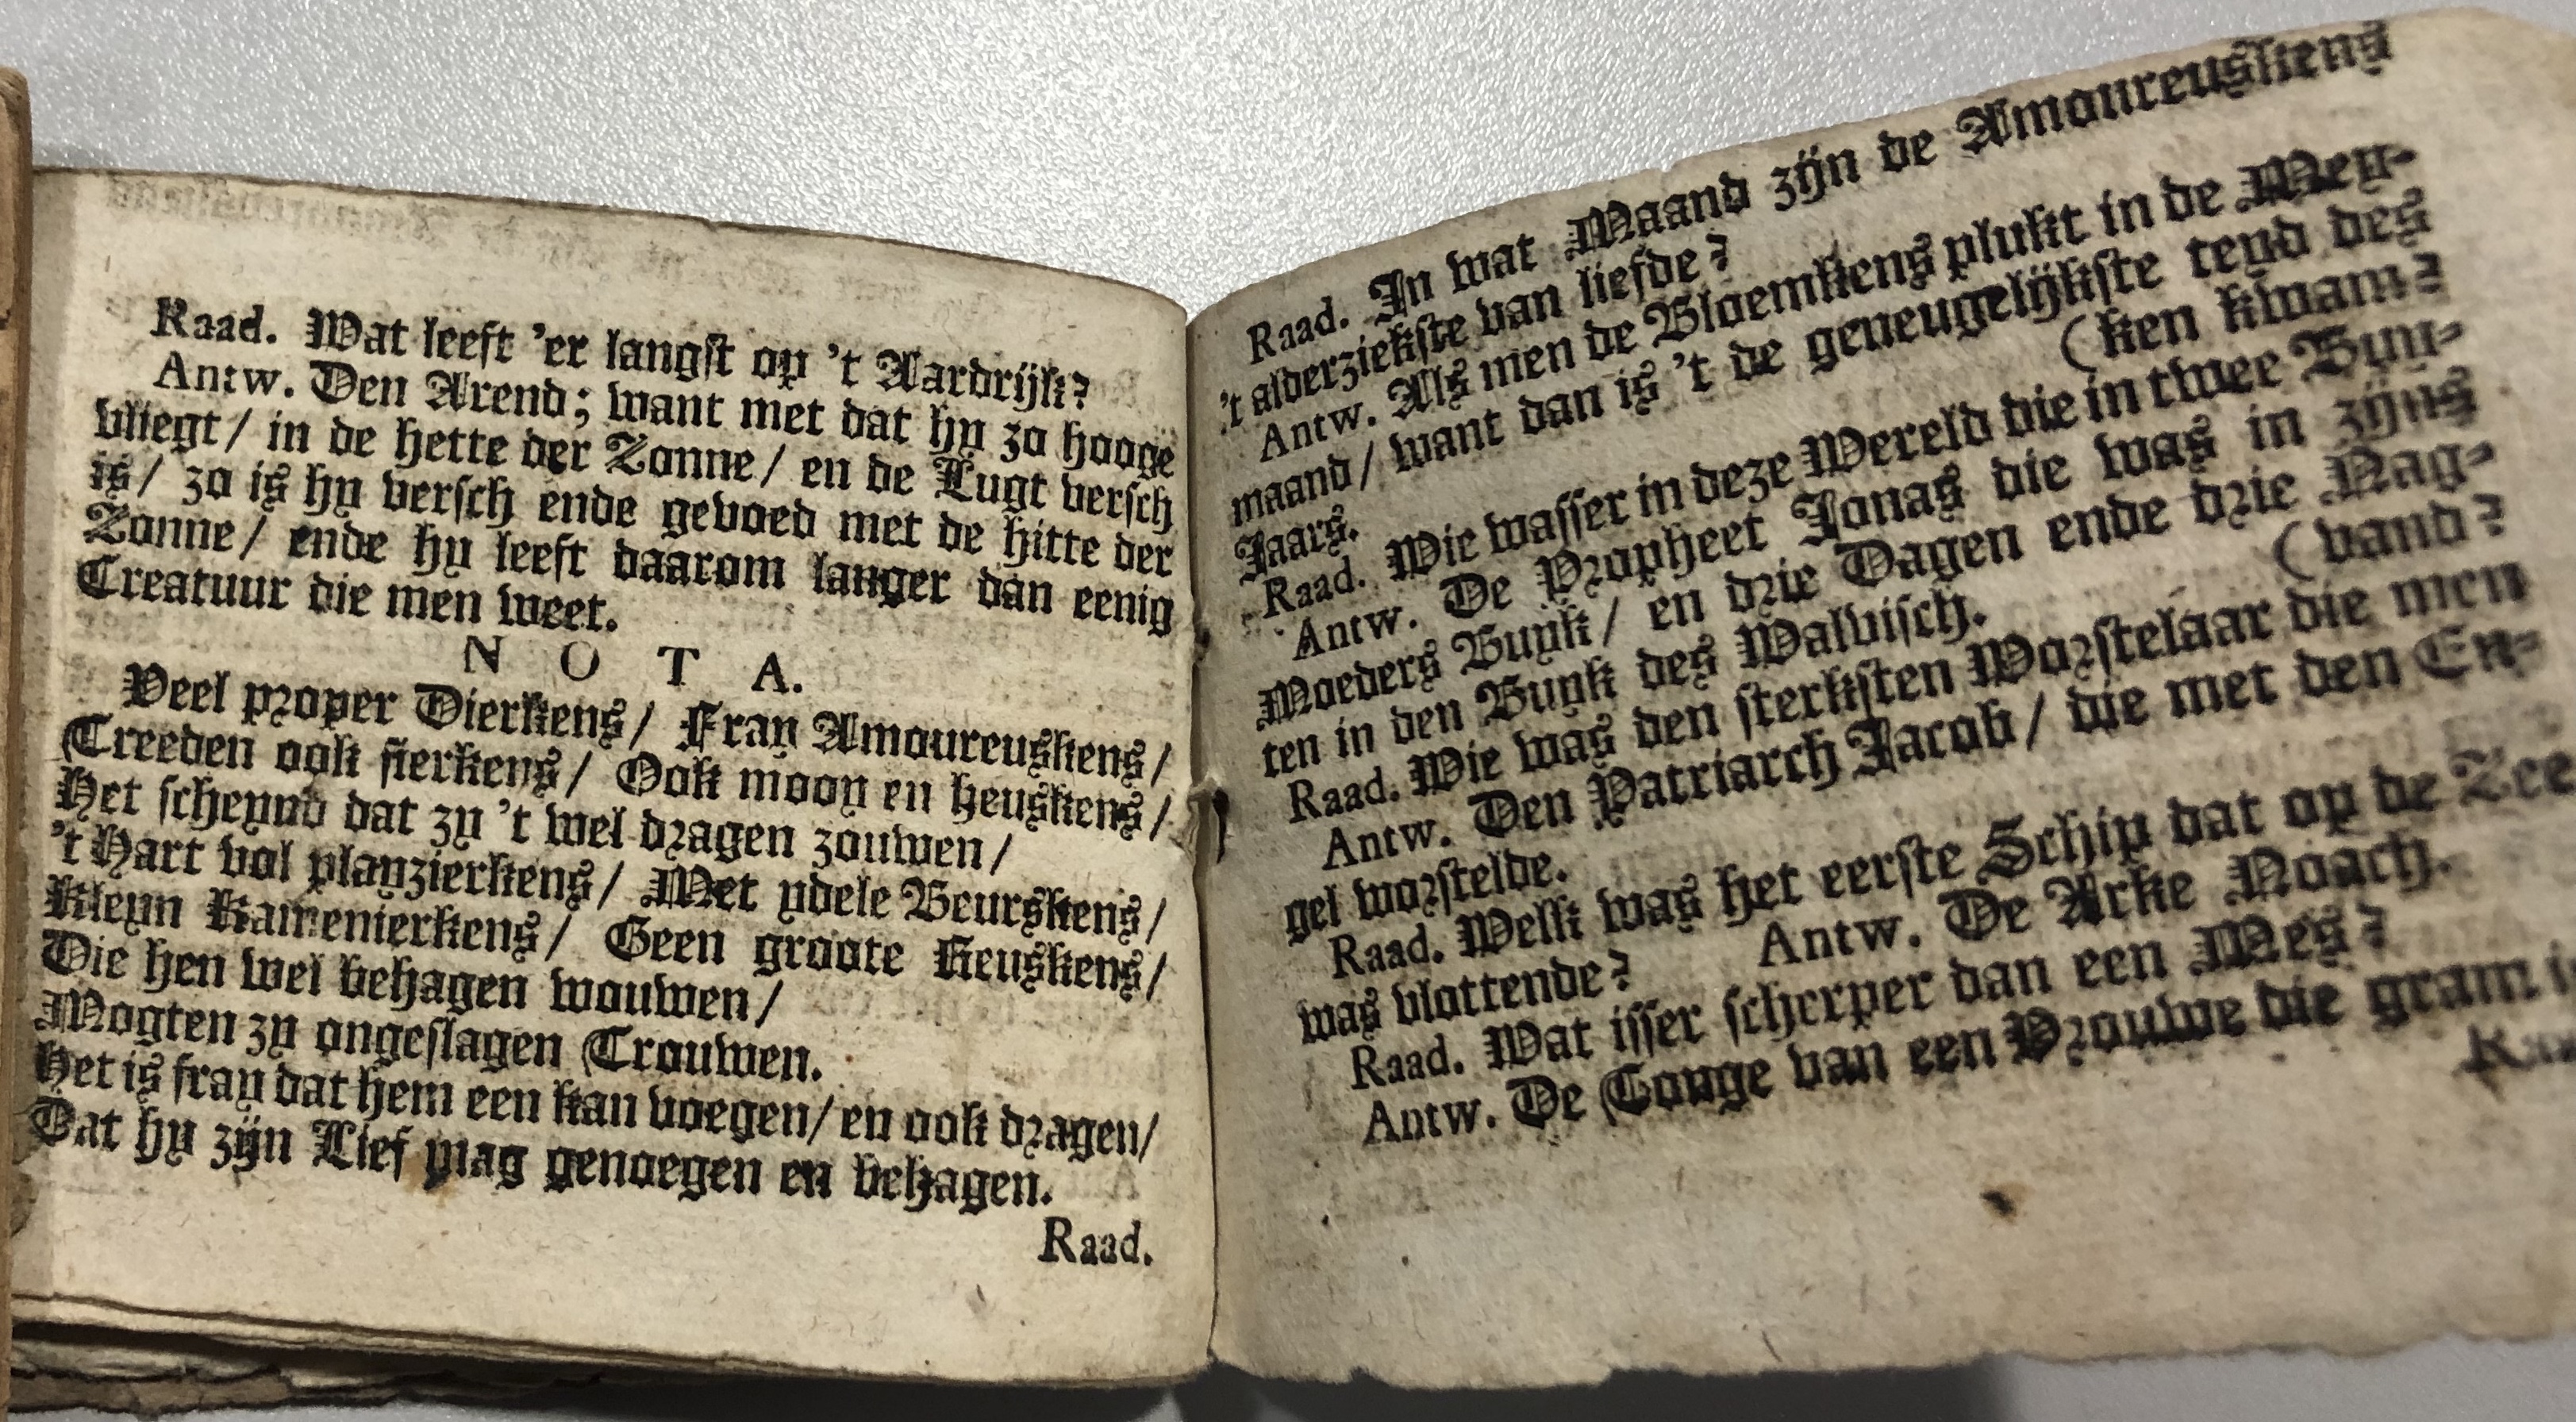 Raad. Wat leeft 'er langst op 't Aardrijk?
Antw. Den Arend; want met dat hy zo hooge
vliegt/ in de hette der Zonne/ en de Lugt versch
is/ zo is hy versch ende gevoed met de hitte der
Zonne/ ende hy leeft daarom langer dan eenig
Creatuur die men weet.
N O T A.
Veel proper Dierkens/ Fray Amoureuskens/
Treeden ook fierkens/ Ook mooy en heuskens/
Het scheynd dat zy 't wel dragen zouwen/
't Hart vol playzierkens/ Met ydele Beurskens/
Kleyn Kamenierkens/ Geen groote Keuskens/
Die hen wel behagen wouwen/
Mogten zy ongeslagen Trouwen.
Het is fray dat hem een kan voegen/ en ook dragen/
Dat hy zijn Lief mag genoegen en behagen.
Raad.
Raad. In wat Maand zijn de Amoureuskens
't alderziekste van liefde?
Antw. Als men de Bloemkens plukt in de Mey-
maand/ want dan is 't de geneugelijkste teyd des
Jaars. (ken kwam?
Raad. Wie wasser in deze Wereld die in twee Buy-
Antw. De Propheet Jonas die was in zijns
Moeders Buyk/ en drie Dagen ende drie Nag-
ten in den Buyk des Walvisch. (vand?
Raad. Wie was den sterksten Worstelaar die men
Antw. Den Patriarch Jacob/ die met den En-
gel worstelde.
Raad. Welk was het eerste Schip dat op de Zee
was vlottende? Antw. De Arke Noach.
Raad. Wat isser scherper dan een Mes?
Antw. De Tonge van een Vrouwe die gram